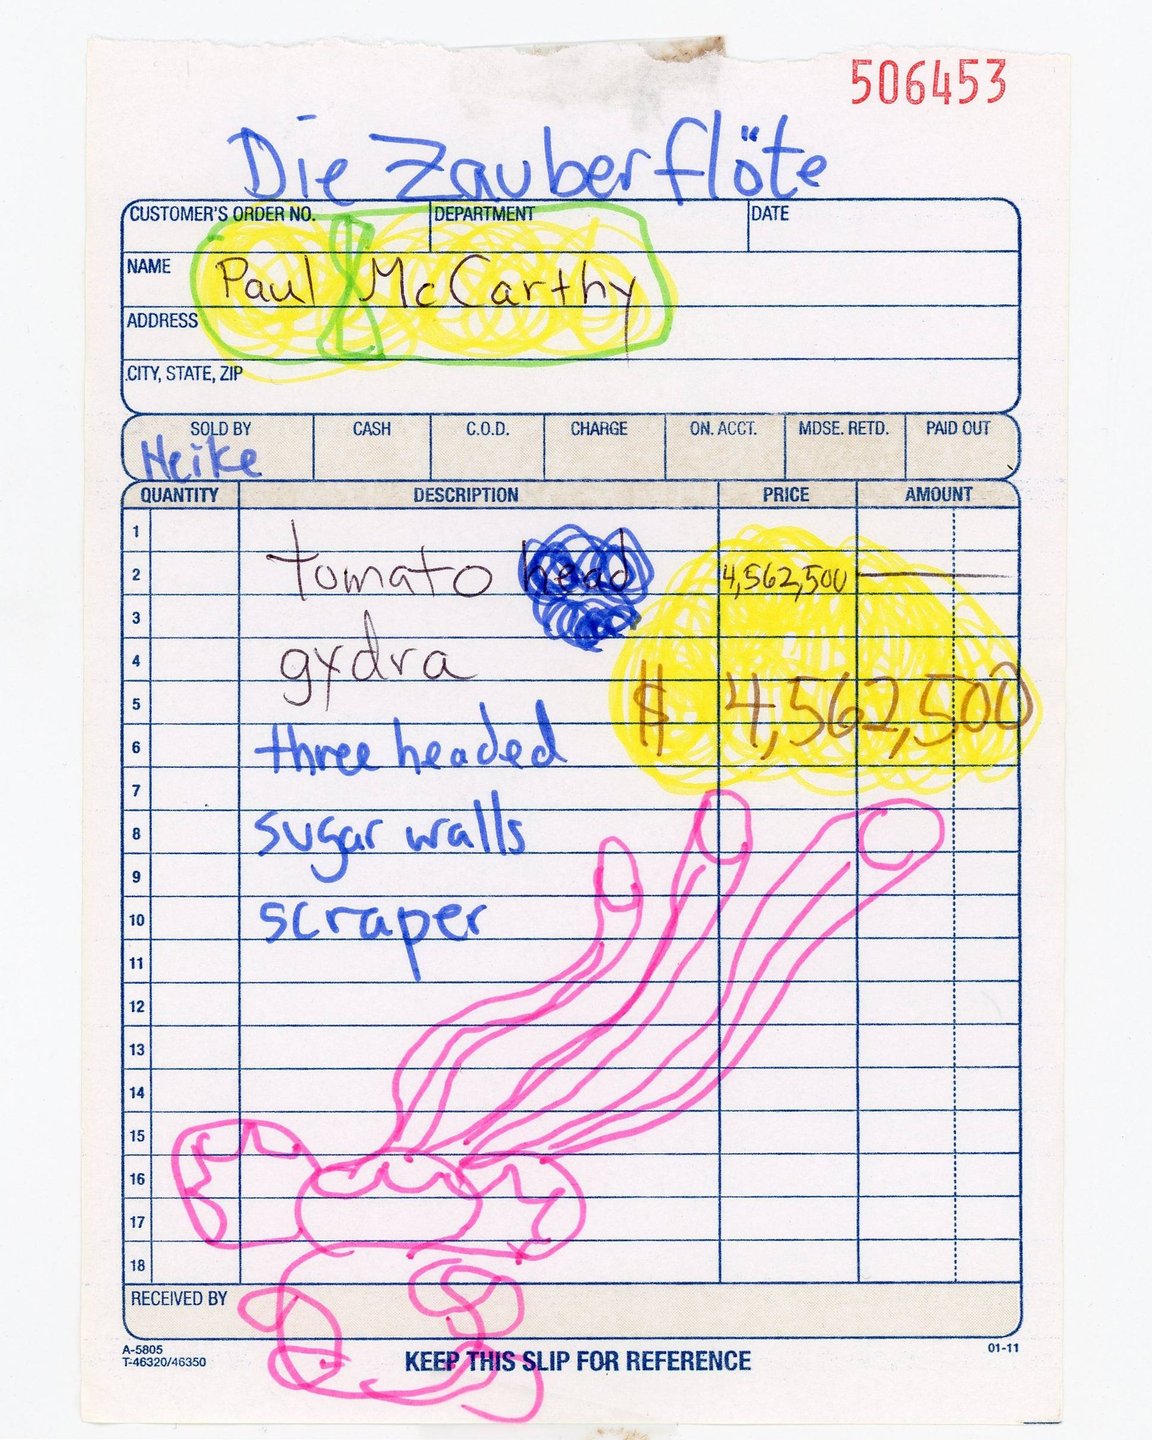 506453
Die Zauberflöte
CUSTOMER'S ORDER NO. DEPARTMENT DATE
NAME Paul McCarthy
ADDRESS
CITY, STATE, ZIP
SOLD BY CASH C.O.D. CHARGE ON. ACCT. MDSE. RETD. PAID OUT
Heike
QUANTITY DESCRIPTION PRICE AMOUNT
1
2 tomato head 4,562,500
3
4 gydra
5 $ 4,562,500
6 three headed
7
8 sugar walls
9
10 scraper
11
12
13
14
15
16
17
18
RECEIVED BY
A-5805
T-46320/46350
KEEP THIS SLIP FOR REFERENCE
01-11